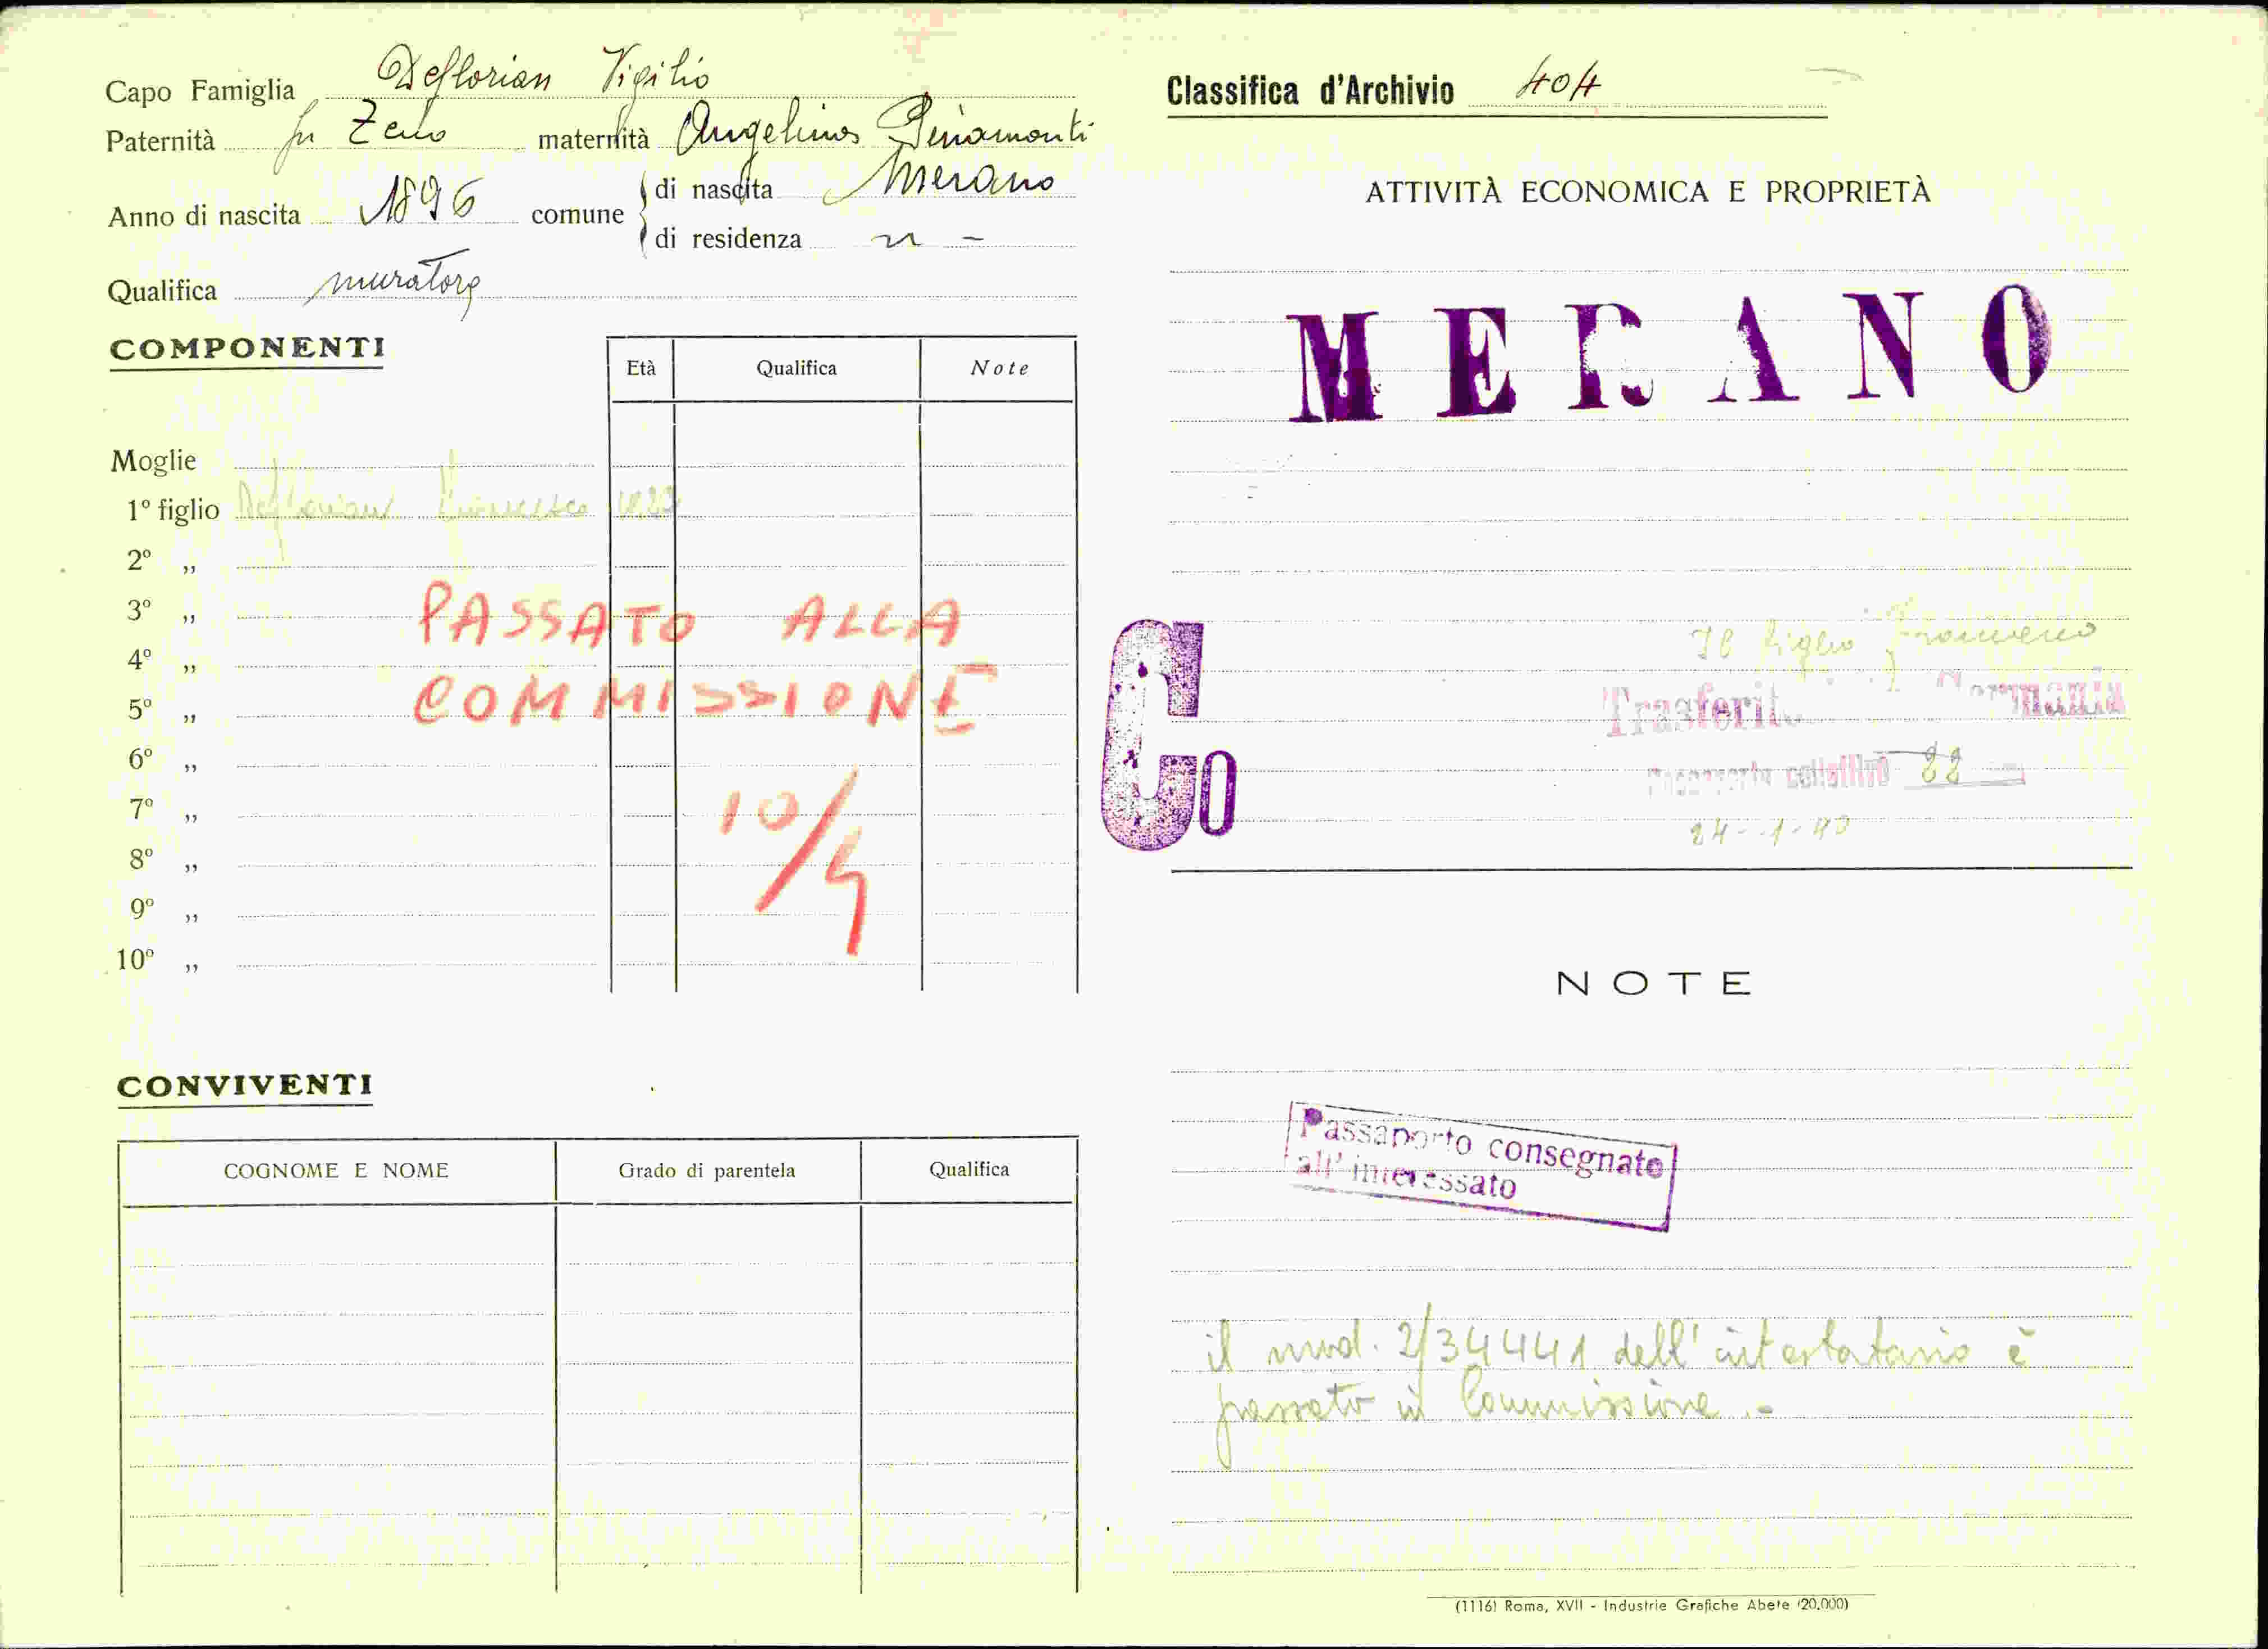 Capo Famiglia Deflorian Vigilio
Paternità fu Zeno maternità Angelina Benamonti
Anno di nascita 1896 comune
di nascita Merano
di residenza " -
Qualifica muratore
COMPONENTI
Età Qualifica Note
Moglie
1º figlio Deflorian Francesco
2º „
3º „
4º „
5º „
6º „
7º „
8º „
9º „
10º „
PASSATO ALLA
COMMISSIONE
10/4
CONVIVENTI
COGNOME E NOME Grado di parentela Qualifica
Classifica d'Archivio 404
ATTIVITÀ ECONOMICA E PROPRIETÀ
MERANO
Co
Il figlio Francesco
Trasferito in Germania
Passaporto collettivo 88
24-1-40
NOTE
Passaporto consegnato
all'interessato
il mod. 2/34441 dell'intestatario è
passato in Commissione.-
(1116) Roma, XVII - Industrie Grafiche Abete (20.000)